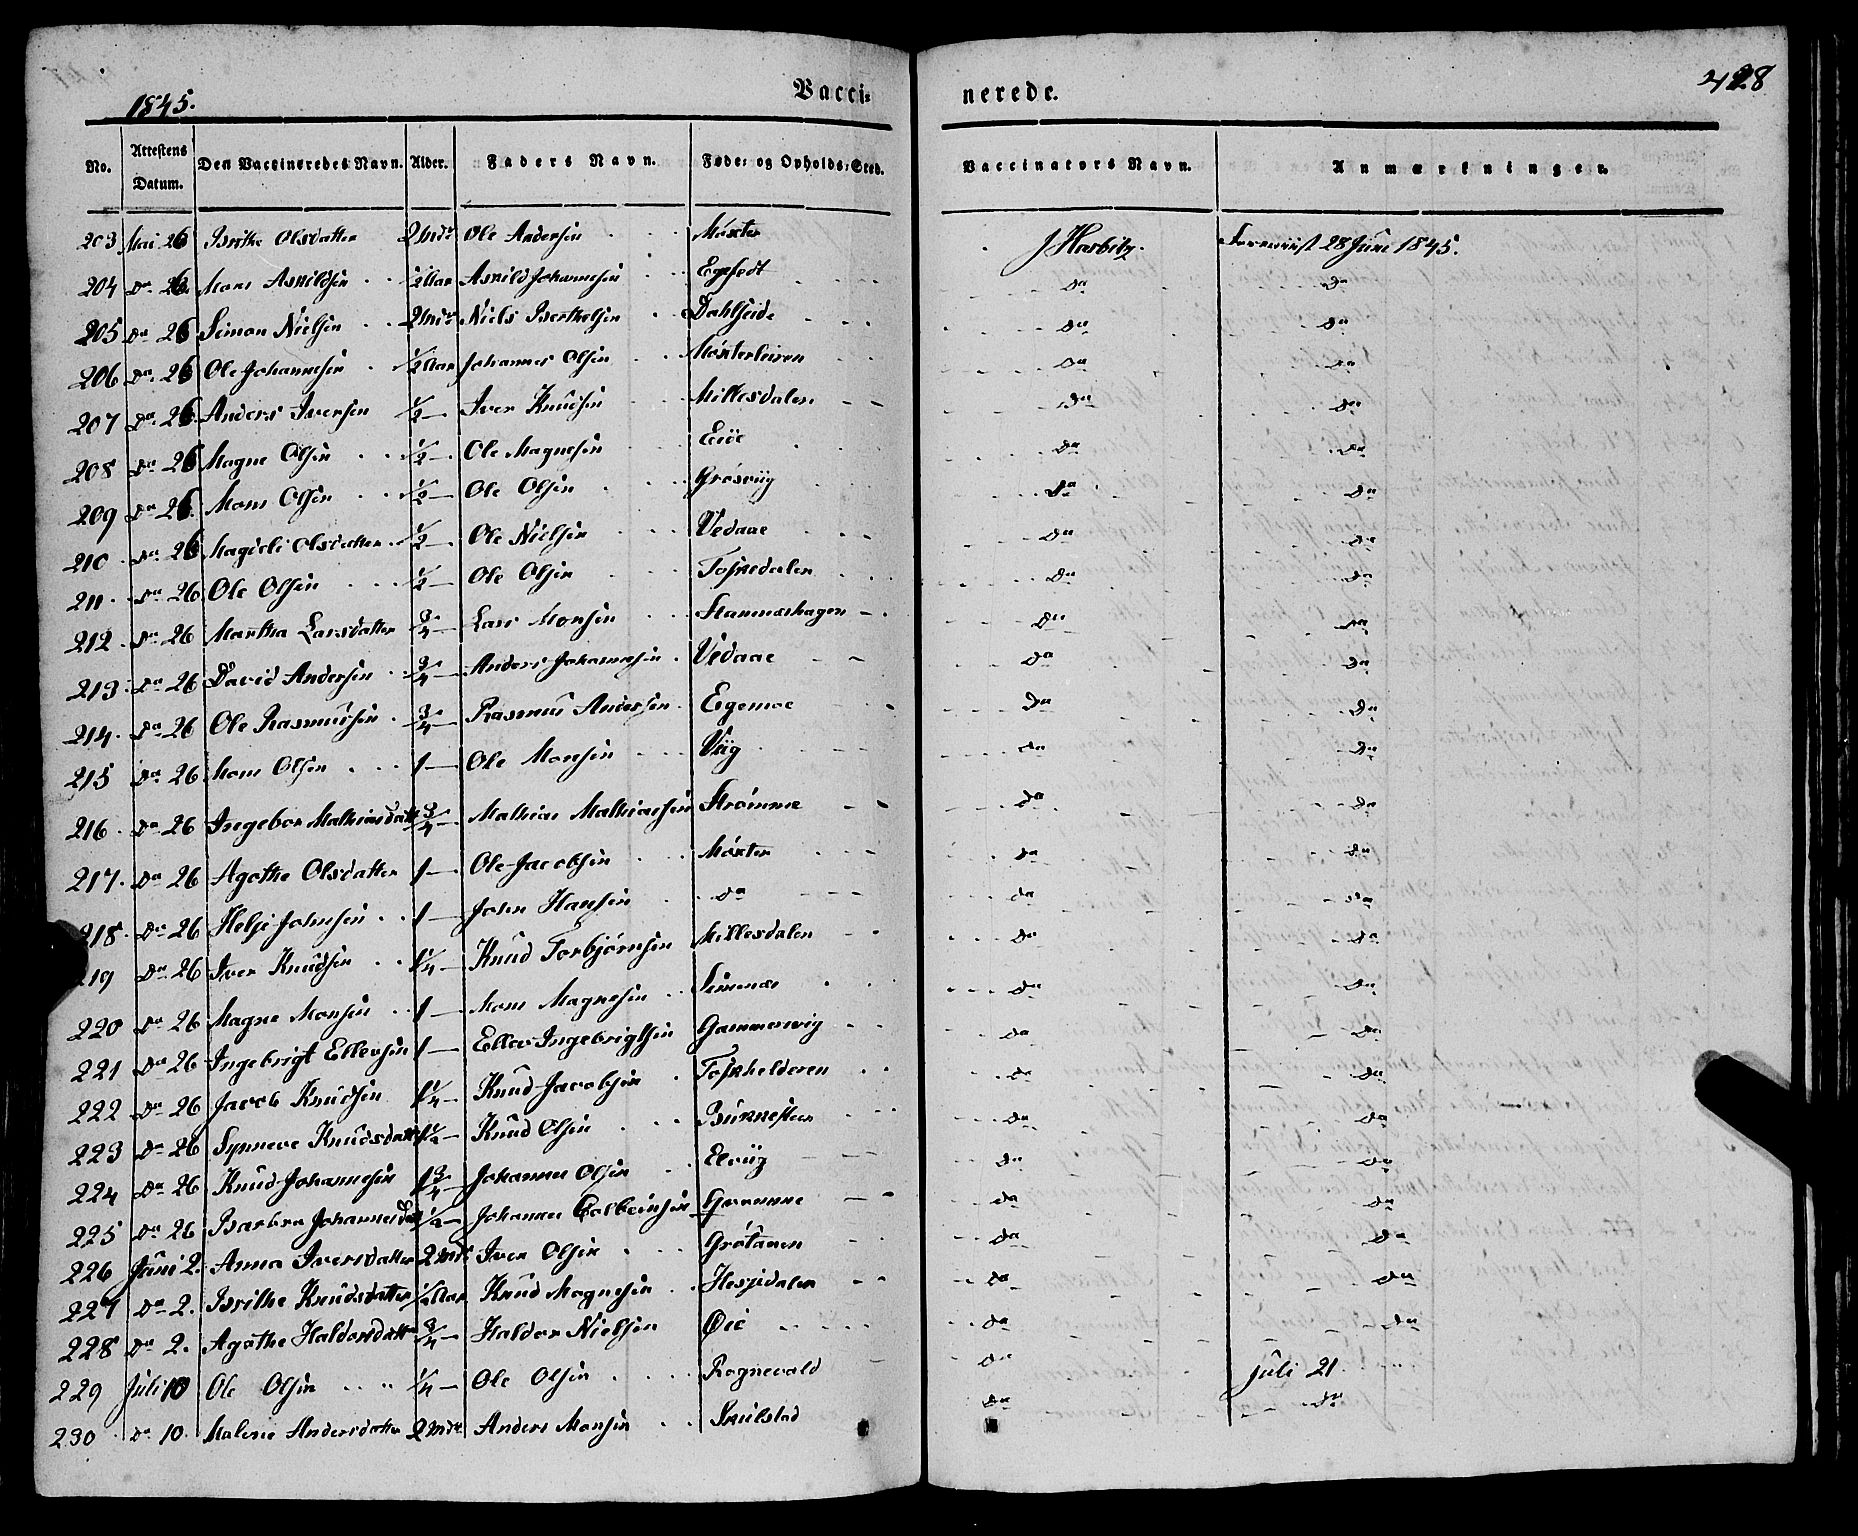 1845. Vacci= nerede. 428
No. Attestens Datum. Den Vaccineredes Navn. Alder. Faders Navn. Føde= og Opholds=Sted. Vaccinators Navn. Anmærkninger.
203 Mai 26 Brithe Olsdatter 2 Mdr Ole Andersen Møxter J Harbitz. Foreviist 28 Juni 1845.
204 Do 26 Mons Askildsen ½ Aar Askild Johannesen Do Do
205 Do 26 Simon Nielsen 2 Mdr Niels Berthelsen Dahlseide Do Do
206 Do 26 Ole Johannesen ½ Aar Johannes Olsen Møxterleiren Do Do
207 Do 26 Anders Iversen ½ — Iver Knudsen Millesdalen Do Do
208 Do 26 Magne Olsen ½ — Ole Magnesen Do Do
209 Do 26 Mons Olsen ½ — Ole Olsen Grøsviig Do Do
210 Do 26 Magdeli Olsdatter ½ — Ole Nielsen Vedaae Do Do
211 Do 26 Ole Olsen ½ — Ole Olsen Toskedalen Do Do
212 Do 26 Martha Larsdatter ¾ — Lars Monsen Do Do
213 Do 26 David Andersen ¾ — Anders Johannesen Vedaae Do Do
214 Do 26 Ole Rasmusen ¾ — Rasmus Andersen Egemoe Do Do
215 Do 26 Mons Olsen 1 — Ole Monsen Viig Do Do
216 Do 26 Ingebor Mathiasdatt ¾ — Mathias Mathiasen Strømme Do Do
217 Do 26 Agathe Olsdatter 1 — Ole Jacobsen Møxter Do Do
218 Do 26 Helje Johnsen 1 — John Hansen Do Do Do
219 Do 26 Iver Knudsen 1¼ — Knud Torbjørnsen Millesdalen Do Do
220 Do 26 Magne Monsen 1 — Mons Magnesen Do Do
221 Do 26 Ingebrigt Ellevsen 1 — Ellev Ingebrigtsen Gammersvig Do Do
222 Do 26 Jacob Knudsen 1¼ — Knud Jacobsen Do Do
223 Do 26 Synneve Knudsdatt 1½ — Knud Olsen Do Do
224 Do 26 Knud Johannesen 1¾ — Johannes Olsen Do Do
225 Do 26 Barbra Johannesd ½ — Johannes Colbeinsen Do Do
226 Juni 2. Anna Iversdatter 2 Mdr Iver Olsen Do Do
227 Do 2. Brithe Knudsdatter ½ Aar Knud Magnesen Hesjedalen Do Do
228 Do 2. Agathe Haldorsdatt ¾ — Haldor Nielsen Øie Do Do
229 Juli 10 Ole Olsen ¼ — Ole Olsen Rognevald Do Juli 21.
230 Do 10. Malene Andersdatter 2 Mdr Anders Monsen Skulstad Do Do